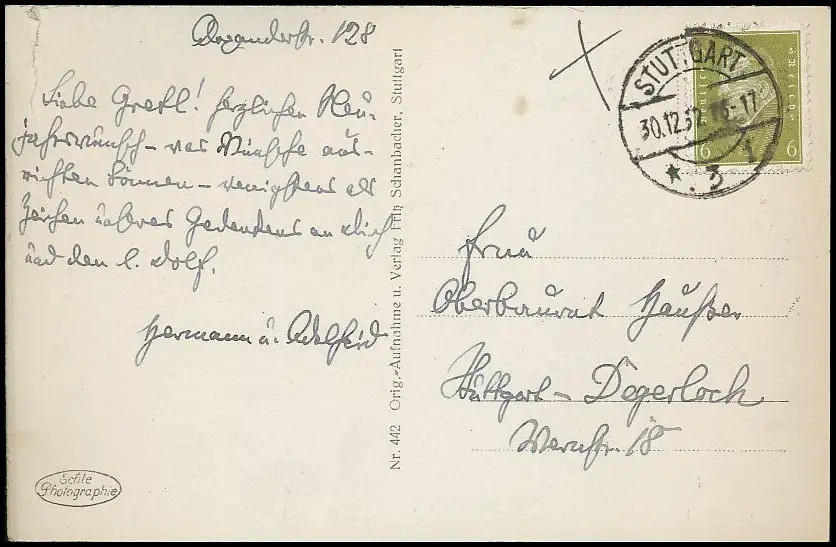 Alexanderstr. 128
Liebe Gretl! Herzlichen Neu-
jahrswunsch - was Wünsche aus-
richten können - wenigstens als
Zeichen unseres Gedenkens an Dich
und den l. Rolf.
Hermann u. Adelheid
Nr. 442 Orig.-Aufnahme u. Verlag Fritz Schanbacher, Stuttgart
Echte
Photographie
STUTTGART
30.12.32. 16-17
* 3 1
6 6
Frau
Oberbaurat Häußer
Stuttgart - Degerloch
Wernstr. 18